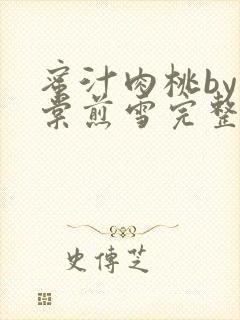 蜜汁肉桃by
棠煎雪完整
史傳芝